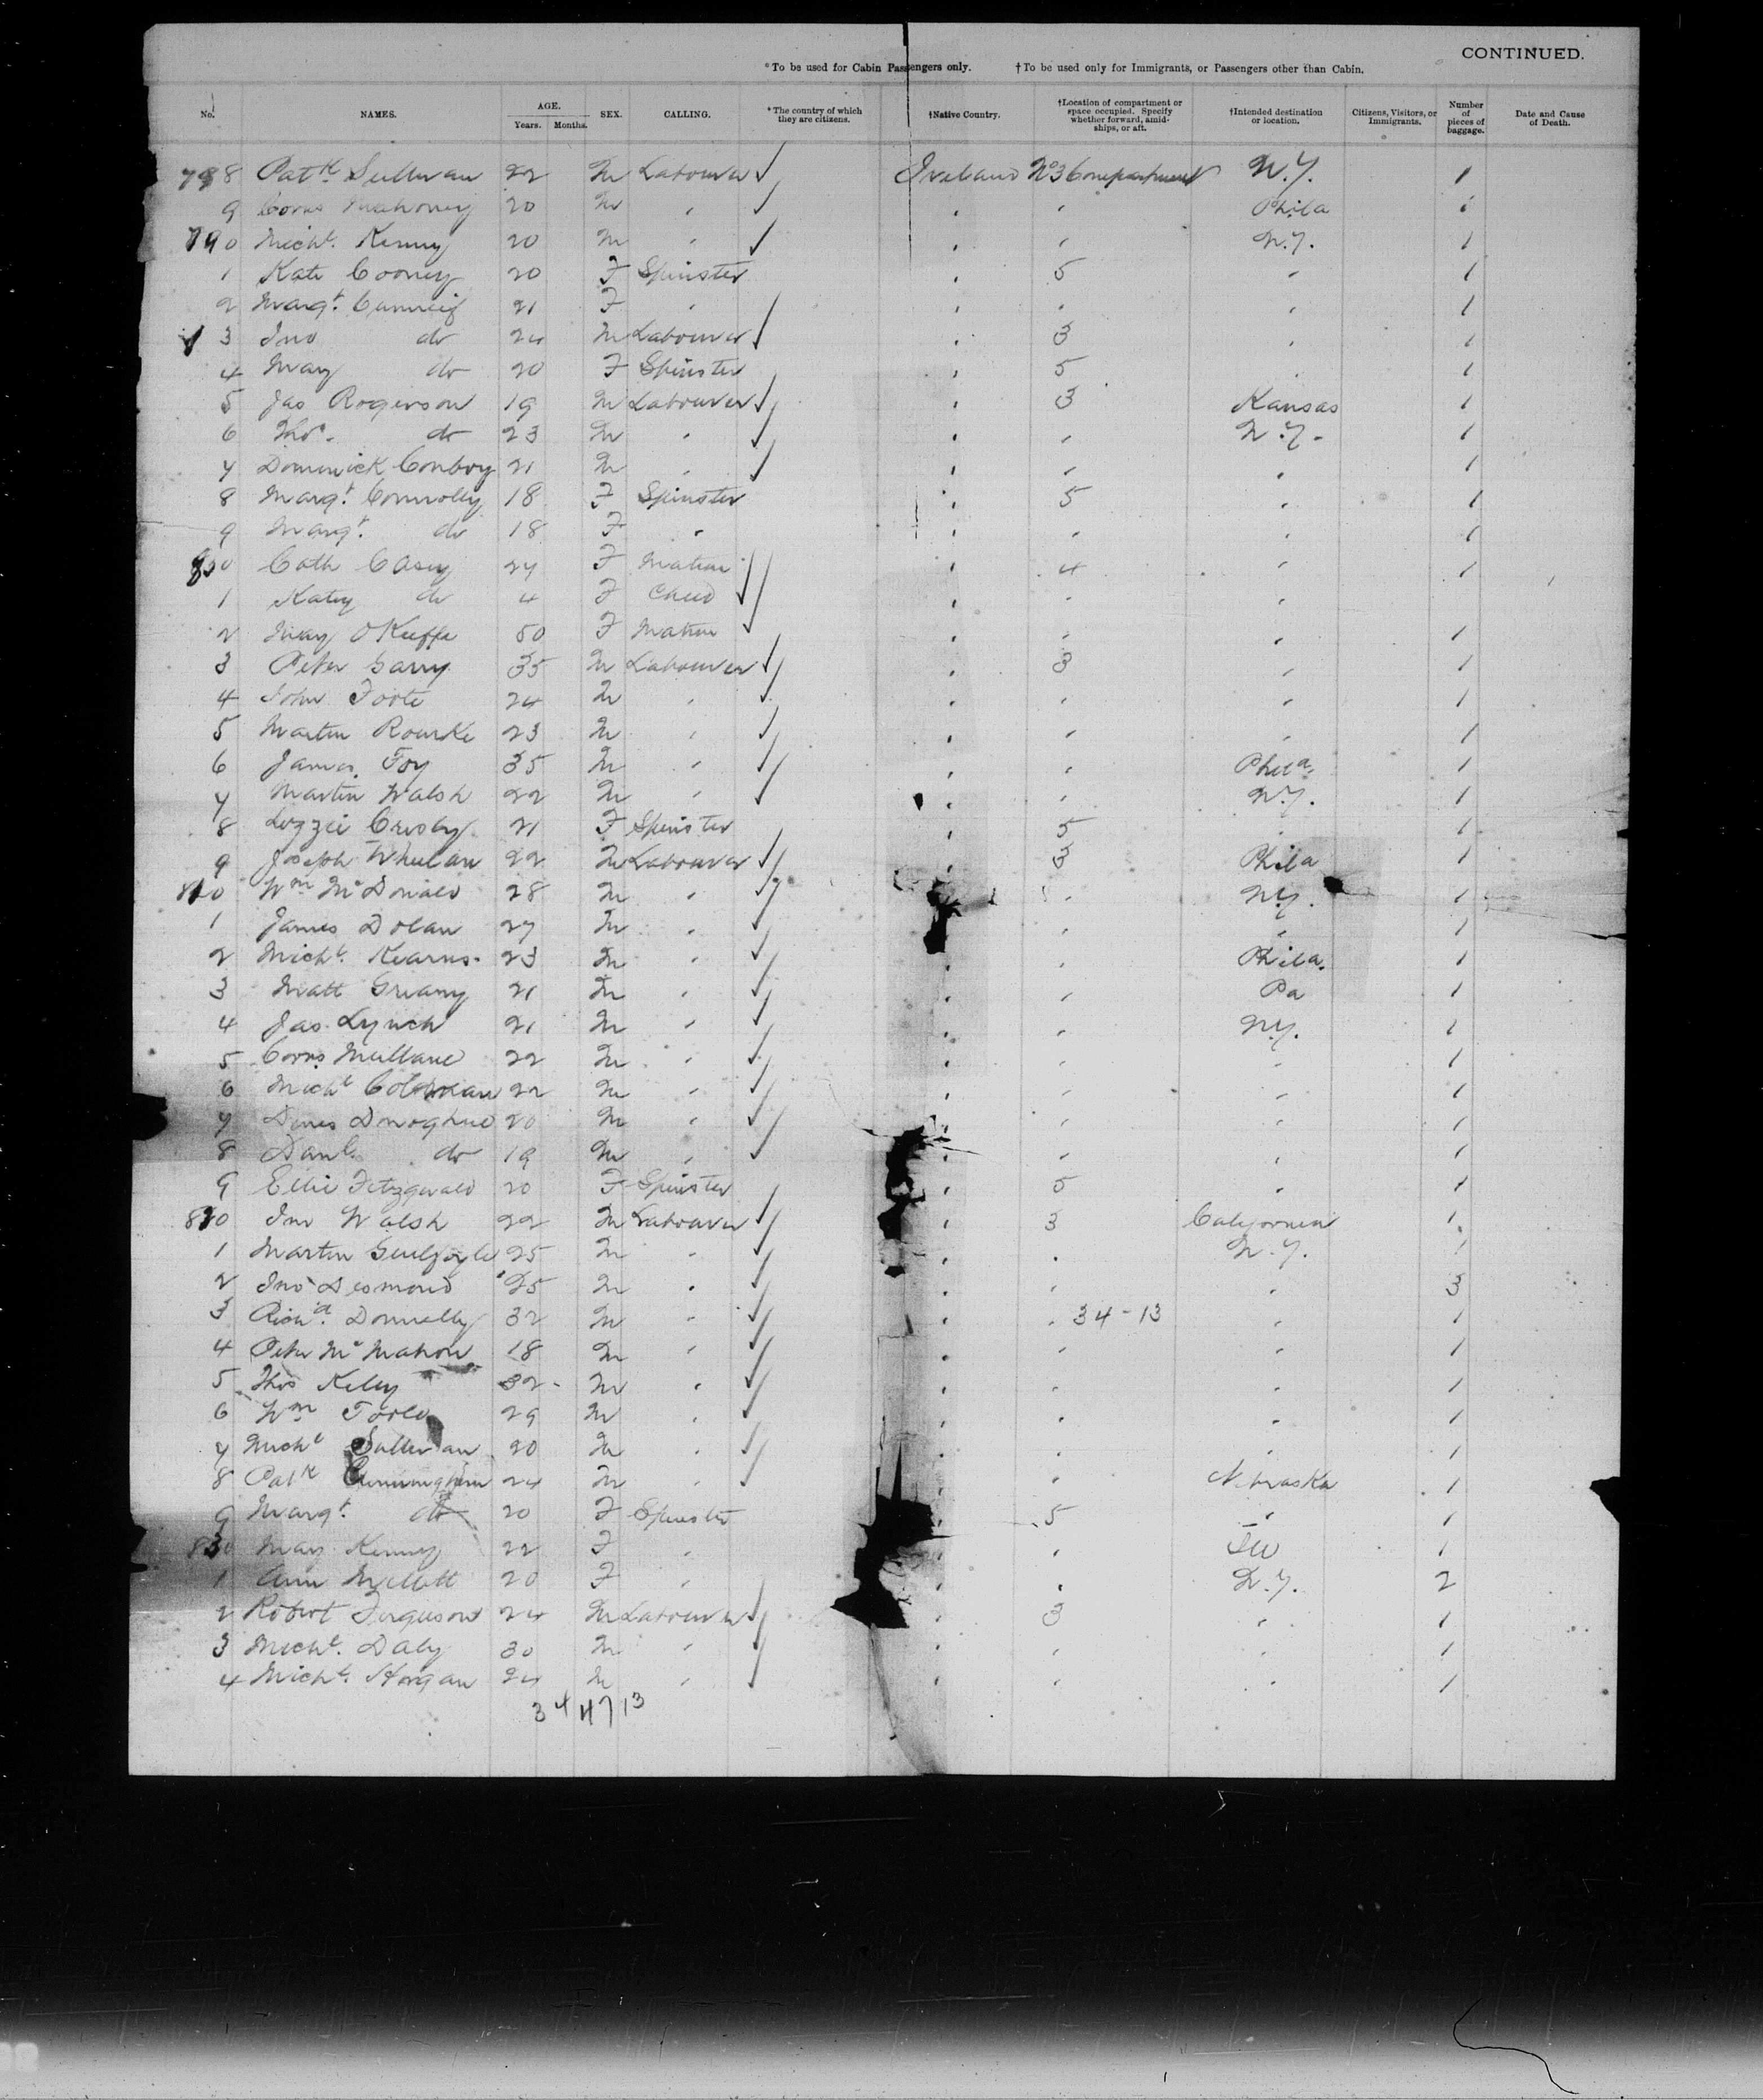 CONTINUED.
*To be used for Cabin Passengers only. †To be used only for Immigrants, or Passengers other than Cabin.
No. NAMES. AGE. Years. Months. SEX. CALLING. *The country of which they are citizens. †Native Country. †Location of compartment or space occupied. Specify whether forward, amidships, or aft. †Intended destination or location. Citizens, Visitors, or Immigrants. Number of pieces of baggage. Date and Cause of Death.
788 Patk Sullivan 22 M Labourer Ireland No 3 Compartment N.Y. 1
9 Corns Mahoney 20 M " " " Phila 1
790 Michl. Kenny 20 M " " " N.Y. 1
1 Kate Cooney 20 F Spinster " 5 " 1
2 Margt. 21 F " " " " 1
3 Jno do 24 M Labourer " 3 " 1
4 Mary do 20 F Spinster " 5 " 1
5 Jas Rogerson 19 M Labourer " 3 Kansas 1
6 Thos. do 23 M " " " N.Y. 1
7 Dominick Conboy 21 M " " " " 1
8 Margt. Connolly 18 F Spinster " 5 " 1
9 Margt. do 18 F " " " " 1
800 Cath Casey 27 F Matron " 4 " 1
1 Katey do 4 F Child " " "
2 Mary O'Keeffe 50 F Matron " " " 1
3 Peter Garry 35 M Labourer " 3 " 1
4 John Foote 24 M " " " " 1
5 Martin Rourke 23 M " " " " 1
6 James Foy 35 M " " " Phila. 1
7 Martin Walsh 22 M " " " N.Y. 1
8 Lizzie Crosby 21 F Spinster " 5 " 1
9 Joseph Whelan 22 M Labourer " 3 Phila 1
810 Wm McDonald 28 M " " " N.Y. 1
1 James Dolan 27 M " " " " 1
2 Michl. Kearns 23 M " " " Phila. 1
3 Matt Greany 21 M " " " Pa 1
4 Jas. Lynch 21 M " " " N.Y. 1
5 Corns Mullane 22 M " " " " 1
6 Michl Coleman 22 M " " " " 1
7 Denis Donoghue 20 M " " " " 1
8 Danl. do 19 M " " " " 1
9 Ellie Fitzgerald 20 F Spinster " 5 " 1
820 Jno Walsh 22 M Labourer " 3 California 1
1 Martin Guilfoyle 25 M " " " N.Y. 1
2 Jno Desmond 25 M " " " " 3
3 Richd. Donnelly 32 M " " " 34-13 " 1
4 Peter McMahon 18 M " " " " 1
5 Thos Kelly 32 M " " " " 1
6 Wm Toole 29 M " " " " 1
7 Michl Sullivan 20 M " " " " 1
8 Patk Cunningham 24 M " " " Nebraska 1
9 Margt. do 20 F Spinster " 5 " 1
830 Mary Kenny 22 F " " " Ill 1
1 Ann 20 F " " " N.Y. 2
2 Robert Ferguson 24 M Labourer " 3 " 1
3 Michl. Daly 30 M " " " " 1
4 Michl. Horgan 24 M " " " " 1
34 47 13